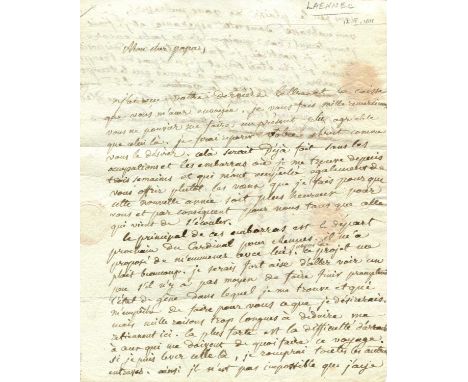 LAENNEC
Mon cher papa,
reçu votre dernière lettre et la caisse
que vous m'avez envoyée. je vous fais mille remerciemens
vous ne pouviez me faire un présent plus agréable
que celui là. je ferai
vous le désirez. cela serait déjà fait sans les
occupations et les embarras où je me trouve depuis
trois semaines et qui m'ont empêché également de
vous offrir plutôt les vœux que je fais pour que
cette nouvelle année soit plus heureuse pour
vous et par conséquent pour nous tous que celle
qui vient de s'écouler.
le principal de ces embarras est le départ
prochain du Cardinal pour rennes. il m'a
proposé de m'emmener avec lui. Ce projet me
plait beaucoup. je serais fort aise d'aller voir un
peu s'il n'y a pas moyen de faire finir promptement
l'état de gêne dans lequel je me trouve et qui
m'empêche de faire pour vous ce que je désirerais.
mais mille raisons trop longues à déduire me
retiennent ici. la plus forte est la difficulté d'arracher
à ceux qui me doivent de quoi faire ce voyage.
si je puis lever celle là, je romprai toutes les autres
entraves. ainsi il n'est pas impossible que j'aye